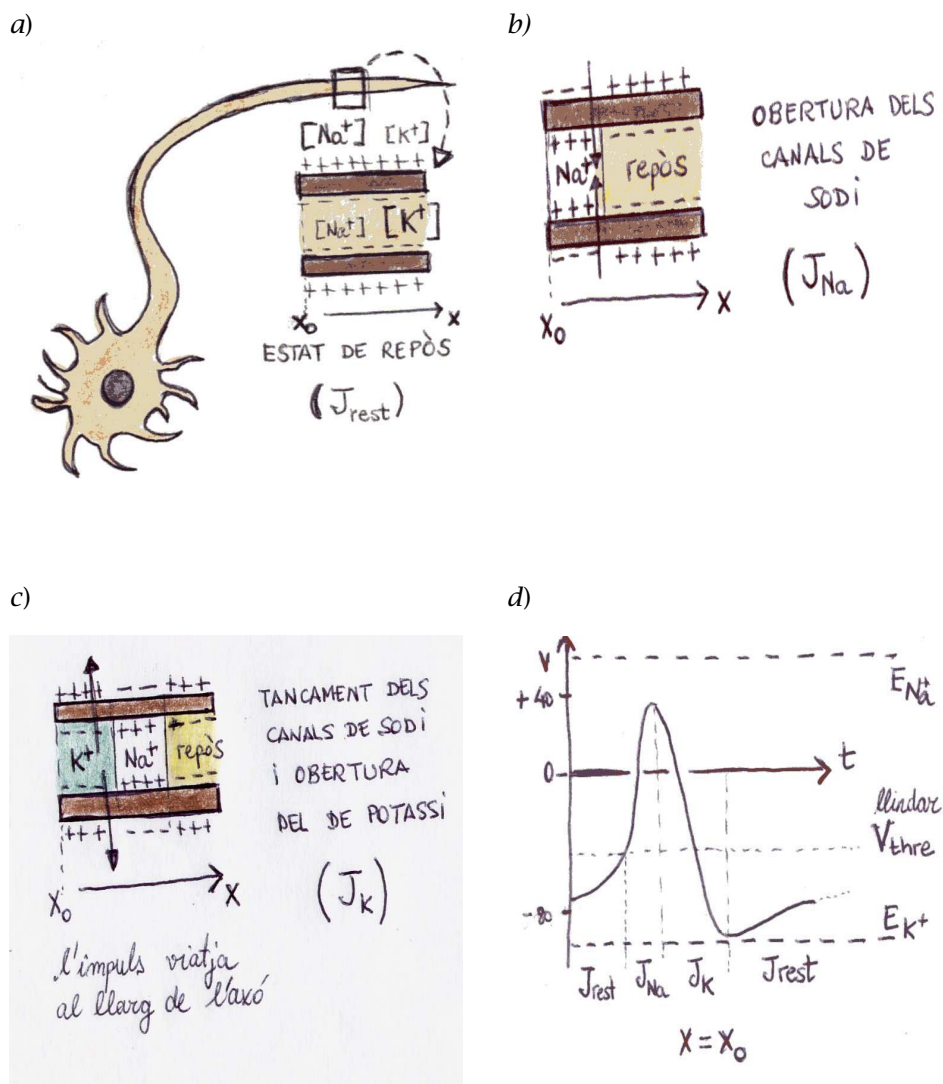 a)
[Na+] [K+]
+++++++
[Na+] [K+]
+++++++
X₀ x
ESTAT DE REPÒS
(J rest)
b)
+++++
+++
Na+ repòs
+++
+++++
X₀ X
OBERTURA DELS
CANALS DE
SODI
(J Na)
c)
++++ --- +++
K+ +++ Na+ ++++ repòs
+++ --- +++
X₀ X
TANCAMENT DELS
CANALS DE SODI
I OBERTURA
DEL DE POTASSI
(J K)
l'impuls viatja
al llarg de l'axó
d)
V
+40
0
-80
E Na+
t
llindar
V thre
E K+
J rest J Na J K J rest
X = X₀